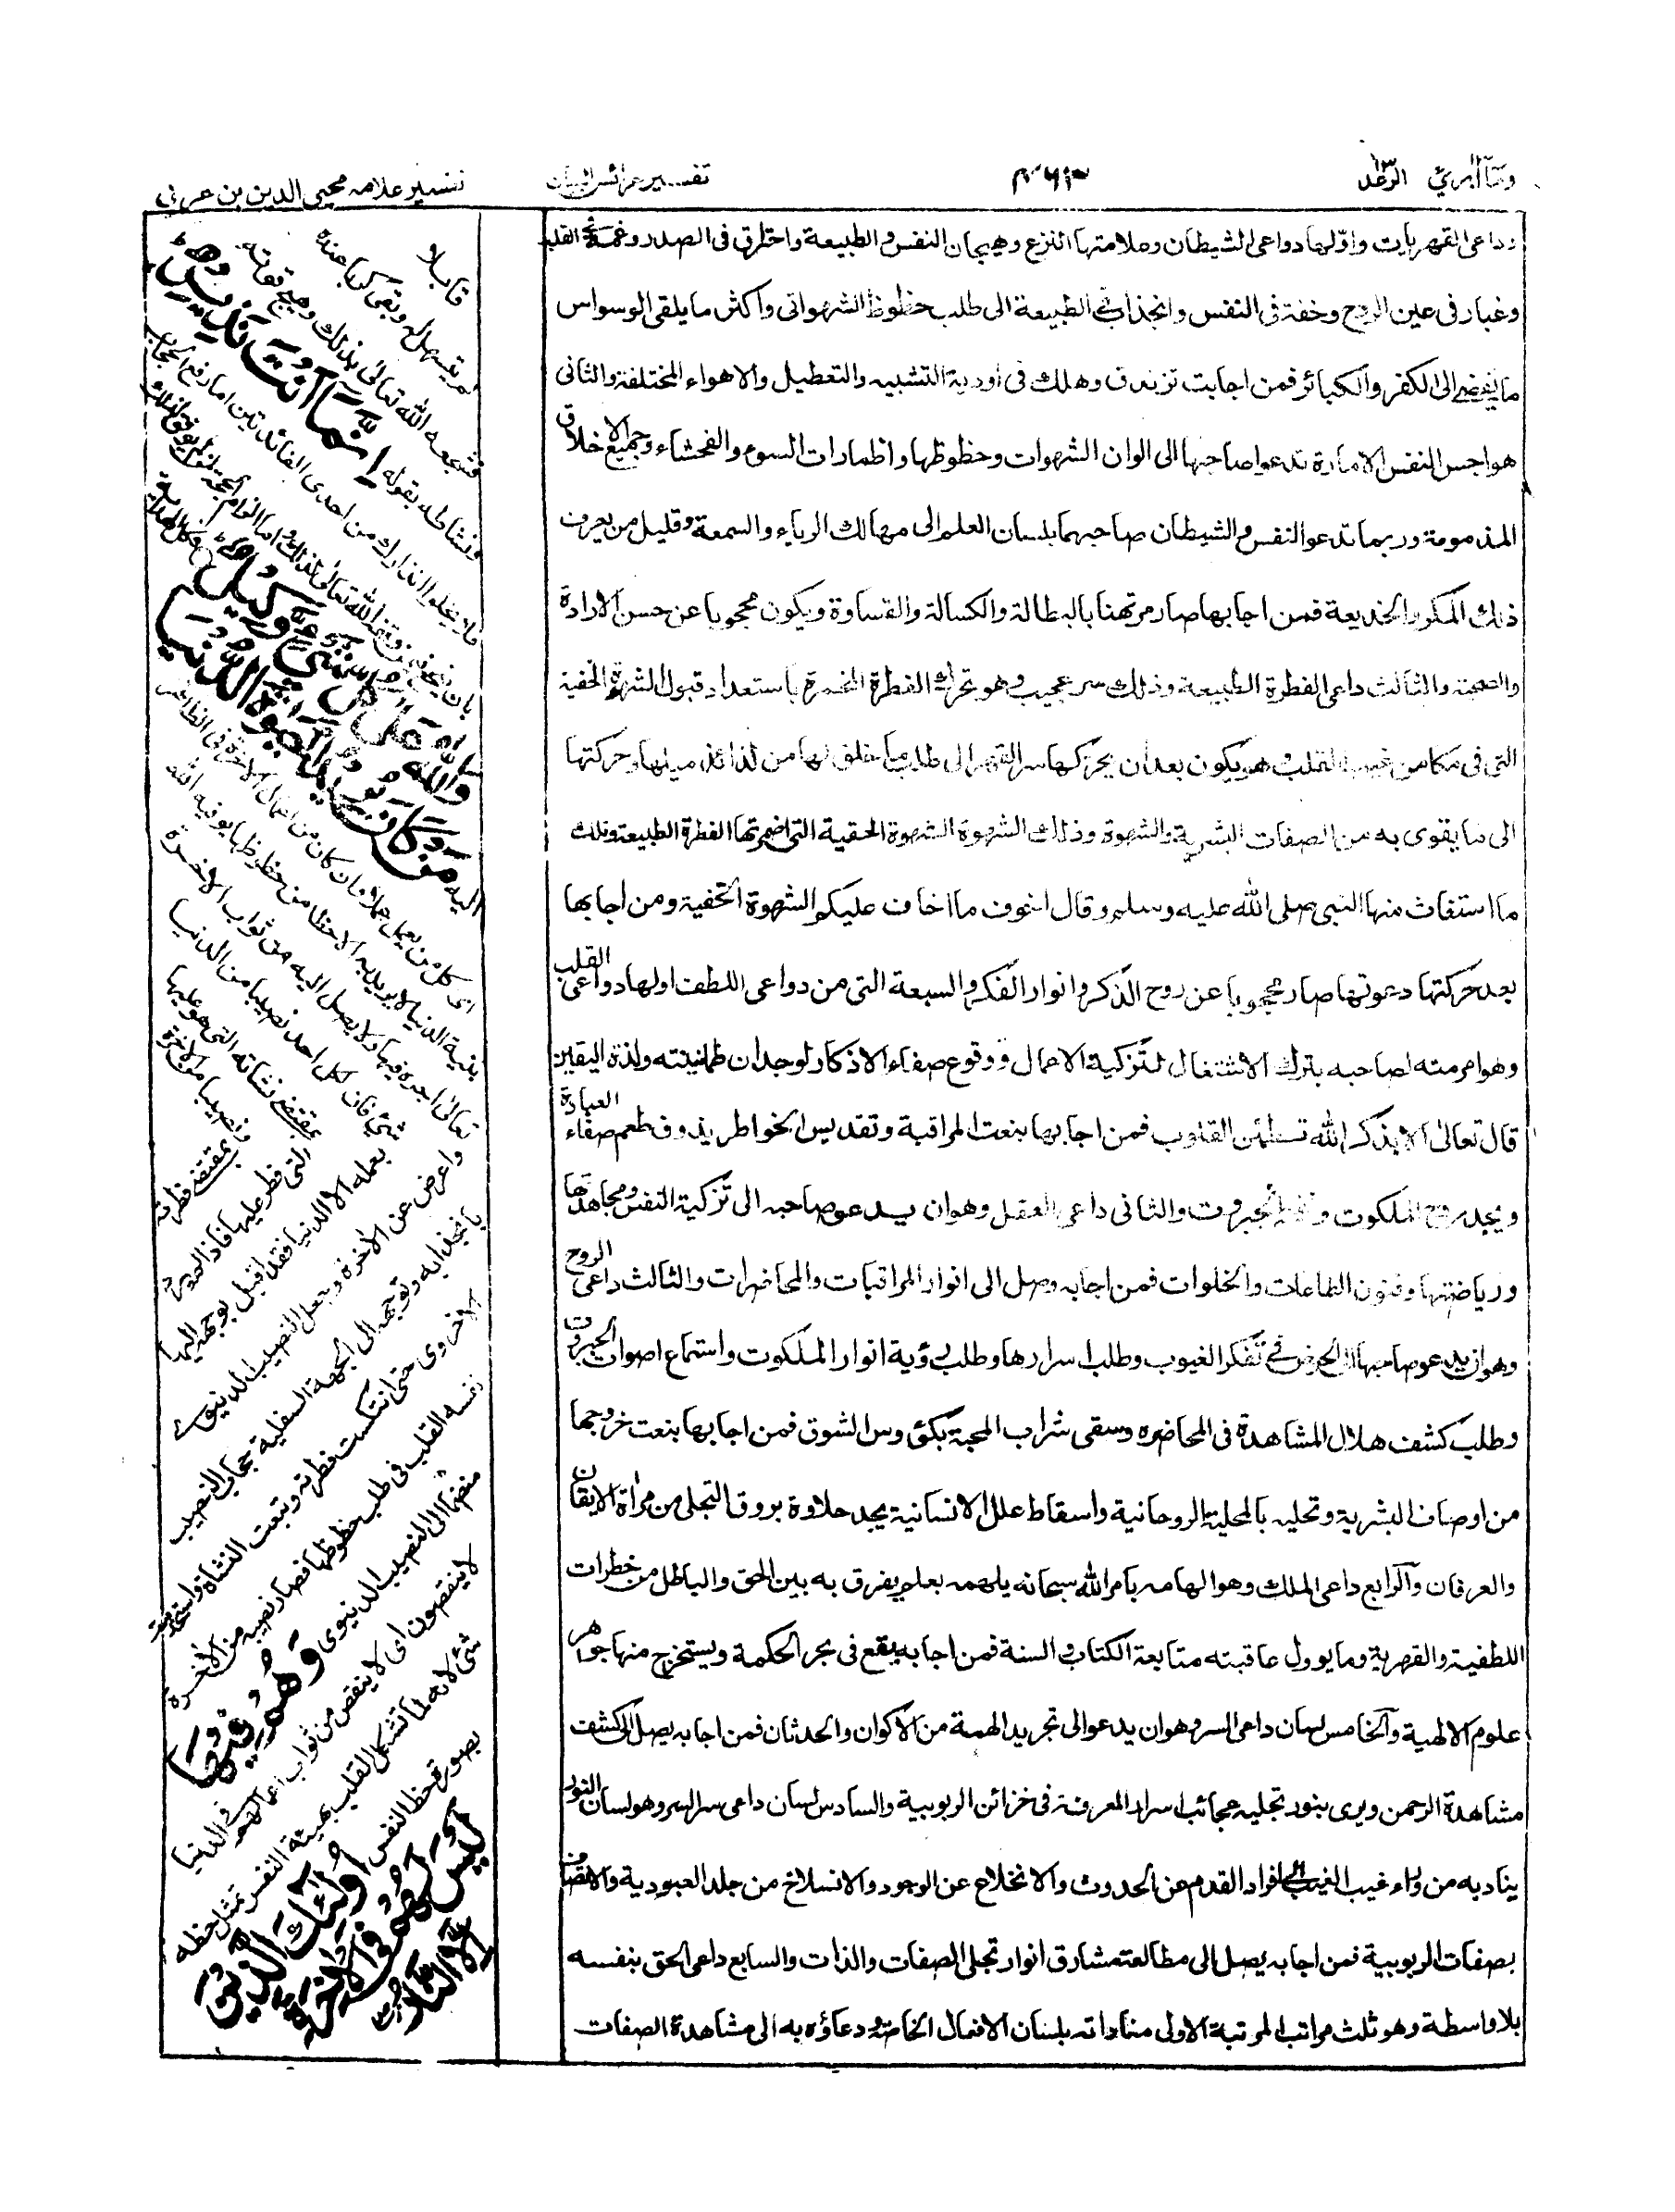 وما أبرئ الرعد ١٣
تفسير عرائس البيان
تفسير علامه محيي الدين بن عربي
دواعى القهريات واولها دواعى الشيطان وعلامتها النزع وهيجان النفس والطبيعة واحتراق فى الصدر وغمة القلب
وغبار فى عين الروح وخفة فى النفس وانجذاب الطبيعة الى طلب حظوظ الشهوانى واكثر ما يلقى الوسواس
ما يفضى الى الكفر والكبائر فمن اجابت تزندق وهلك فى اودية التشبيه والتعطيل والاهواء المختلفة والثانى
هواجس النفس الامارة تدعو صاحبها الى الوان الشهوات وحظوظها واظهارات السوء والفحشاء وجميع الاخلاق
المذمومة وربما تدعو النفس والشيطان صاحبهما بلسان العلم الى مهالك الرياء والسمعة وقليل من يعرف
ذلك المكر والخديعة فمن اجابها صار مرتهنا بالبطالة والكسالة والقساوة ويكون محجوبا عن حسن الارادة
والصحبة والثالث داعى الفطرة الطبيعة وذلك سر عجيب وهو تحرك الفطرة المخمرة باستعداد قبول الشهوة الخفية
التى فى مكامن غيب القلب وهو يكون بعد ان يحركها سر القهر الى طلب ما خلق لها من لذائذ ميلها وحركتها
الى ما يقوى به من الصفات البشرية والشهوة وذلك الشهوة الشهوة الخفية التى اضمرتها الفطرة الطبيعة وتلك
ما استغاث منها النبى صلى الله عليه وسلم وقال اخوف ما اخاف عليكم الشهوة الخفية ومن اجابها
بعد حركتها دعوتها صار محجوبا عن روح الذكر وانوار الفكر والسبعة التى من دواعى اللطف اولها دواعى القلب
وهو امر منه لصاحبه بترك الاشتغال لتزكية الاعمال ووقوع صفاء الاذكار لوجدان طمانينته ولذة اليقين
قال تعالى الا بذكر الله تطمئن القلوب فمن اجابها بنعت المراقبة وتقديس الخواطر يذوق طعم صفاء العبادة
ويجد روح الملكوت الجبروت والثانى داعى العقل وهو ان يدعو صاحبه الى تزكية النفس ومجاهدتها
ورياضتها وفنون الطاعات والخلوات فمن اجابه وصل الى انوار المراقبات والمحاضرات والثالث داعى الروح
وهو ان يدعو صاحبها الى الخوض فى تفكر الغيوب وطلب اسرارها وطلب رؤية انوار الملكوت واستماع اصوات الجبروت
وطلب كشف هلال المشاهدة فى المحاضره وسقى شراب المحبة بكؤوس الشوق فمن اجابها بنعت خروجها
من اوصاف البشرية وتحليه بالمحلية الروحانية واسقاط علل الانسانية يجد حلاوة بروق التجلى من مراة الايقان
والعرفان والرابع داعى الملك وهو الهامه بامر الله سبحانه يلهمه بعلم يفرق به بين الحق والباطل من خطرات
اللطفية والقهرية وما يوول عاقبته متابعة الكتاب والسنة فمن اجابه يقع فى بحر الحكمة ويستخرج منها جواهر
علوم الالهية والخامس لسان داعى السر وهو ان يدعو الى تجريد الهمة من الاكوان والحدثان فمن اجابه يصل الى كشف
مشاهدة الرحمن ويرى بنور تجليه عجائب اسرار المعرفة فى خزائن الربوبية والسادس لسان داعى سر السر وهو لسان النور
يناديه من وراء غيب الغيب الى افراد القدم عن الحدوث والانخلاع عن الوجود والانسلاخ من جلد العبودية والاتصاف
بصفات الربوبية فمن اجابه يصل الى مطالعة مشارق انوار تجلى الصفات والذات والسابع داعى الحق بنفسه
بلا واسطة وهو ثلث مراتب المرتبة الاولى مناداته بلسان الافعال الخاصة ودعاؤه به الى مشاهدة الصفات
قابلا
فشجعه الله تعالى بذلك وهيج قوته
ونشاطه بقوله إنما أنت نذير
فلا يخلو انذارك من احدى الفائدتين اما رفع الحجاب
والله على كل شيء وكيل
اليه من كان يريد الحيوة الدنيا
اى كل من يعمل عملا وان كان من اعمال الاخرة فى الظاهر
بنية الدنيا لا يريد به الا حظا من حظوظها يوفيه الله
تعالى اجره فيها ولا يصل اليه من ثواب الاخرة
شئ فان لكل احد نصيبا من الدنيا
بمقتضى نشاته التى هو عليها
ونصيبا من الاخرة بمقتضى فطرته
التى فطر عليها فاذا لم يرد
بعمله الا الدنيا فقد اقبل بوجهه اليها
واعرض عن الاخرة وجعل النصيب الدنيوى
بانجذابه وتوجهه الى الجهة السفلية حجاب النصيب
الاخروى حتى انتكست فطرته وتبعت النشاة واستخدمت
نفسه القلب فى طلب حظوظها فصار نصيبه من الاخرة
منضما الى النصيب الدنيوى وهم فيها
لا ينقصون اى لا ينقص من ثواب اعمالهم فى الدنيا
شئ لانه لما تشكل القلب بهيئة النفس تمثل حظه
بصورة حظ النفس أولئك الذين
ليس لهم فى الآخرة
إلا النار